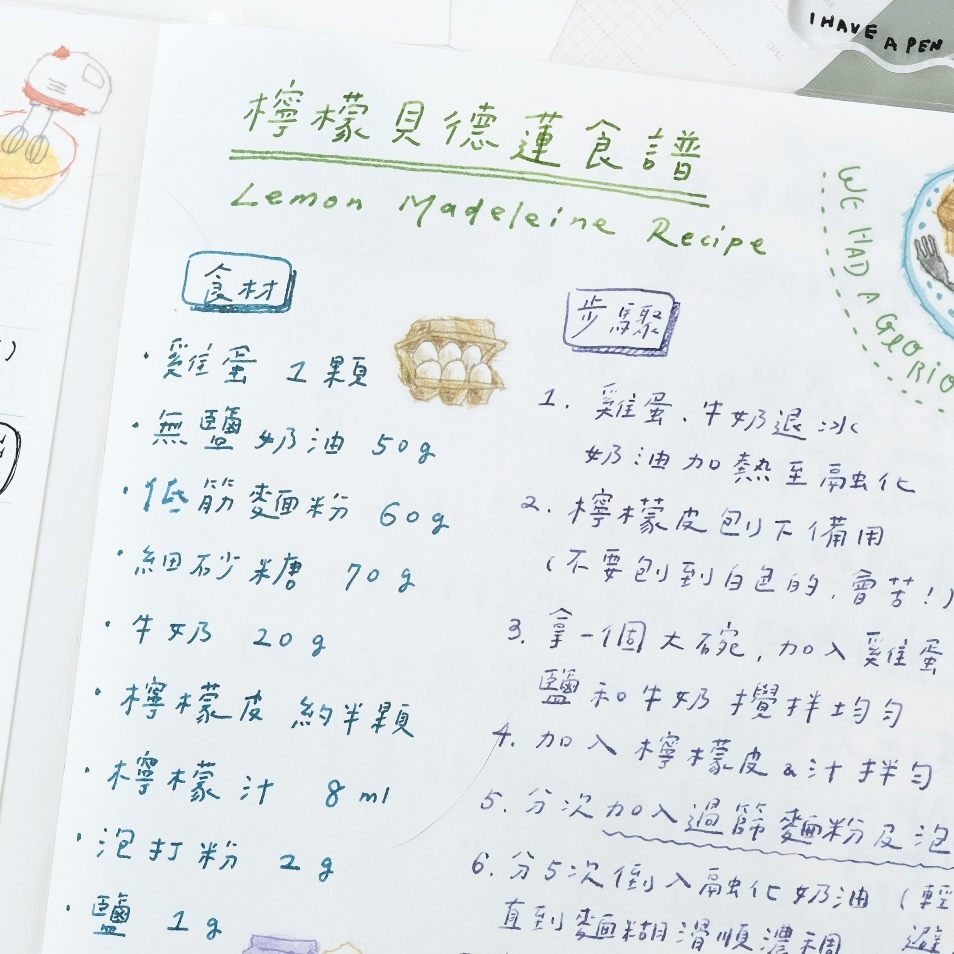 I HAVE A PEN
檸檬貝德蓮食譜
Lemon Madeleine Recipe
WE HAD A
食材
・雞蛋 1顆
・無鹽奶油 50g
・低筋麵粉 60g
・細砂糖 70g
・牛奶 20g
・檸檬皮 約半顆
・檸檬汁 8ml
・泡打粉 2g
・鹽 1g
步驟
1. 雞蛋、牛奶退冰
奶油加熱至融化
2. 檸檬皮刨下備用
(不要刨到白色的,會苦!)
3. 拿一個大碗,加入雞蛋
鹽和牛奶攪拌均勻
4. 加入檸檬皮&汁拌勻
5. 分次加入過篩麵粉及泡
6. 分5次倒入融化奶油(輕
直到麵糊滑順濃稠 避